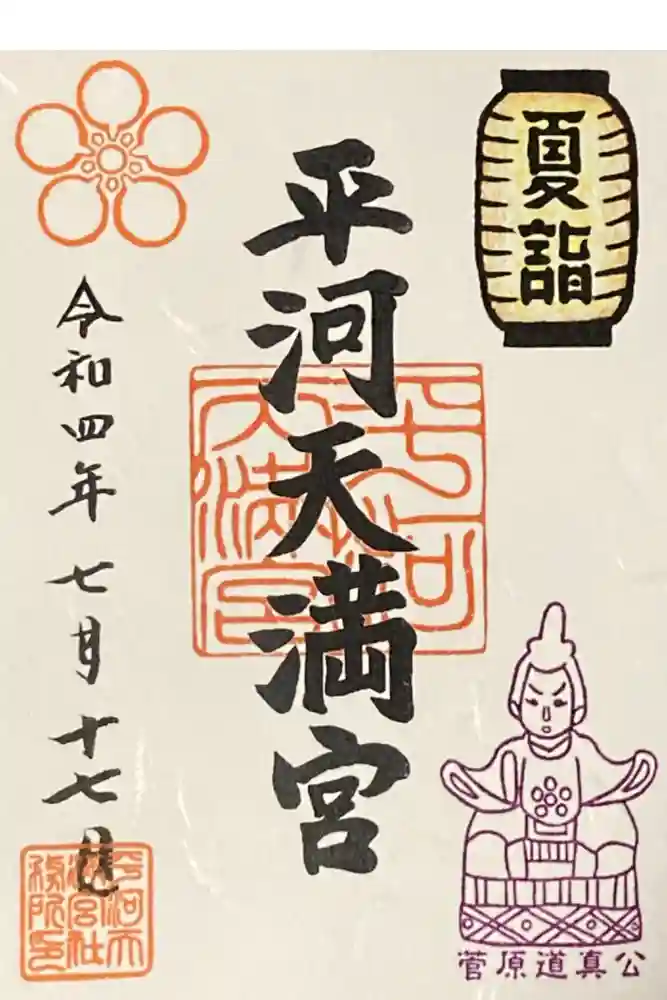 夏詣
平河天満宮
平河
天満宮
令和四年七月十七日
平河天
満宮社
務所印
菅原道真公